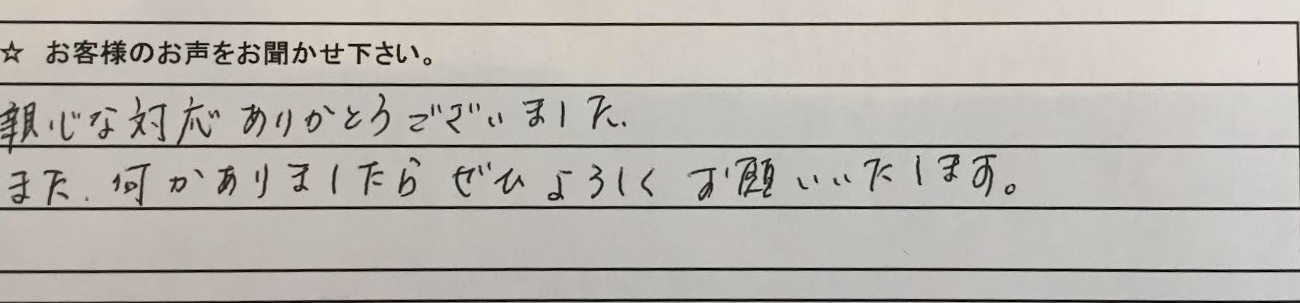 ☆ お客様のお声をお聞かせ下さい。
親心な対応ありがとうございました.
また.何かありましたらぜひよろしくお願いいたします。